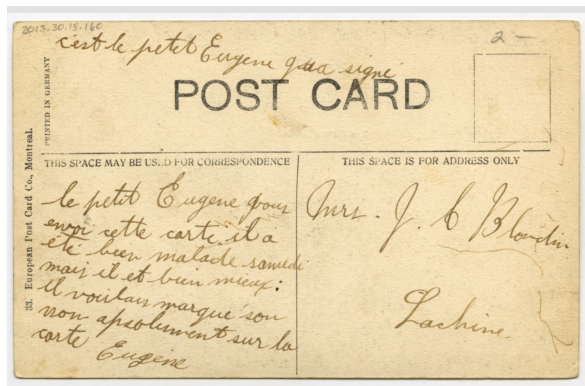 2013.30.15.160
2 —
c'est le petet Eugene qua signé
POST CARD
PRINTED IN GERMANY
33. European Post Card Co., Montreal.
THIS SPACE MAY BE USED FOR CORRESPONDENCE
le petit Eugene vous
envoi cette carte il a
eté bien malade samedi
mais il et bien mieux:
il voulais marqué son
non apsolument sur la
carte Eugène
THIS SPACE IS FOR ADDRESS ONLY
Mrs. J. C Blondin
Lachine